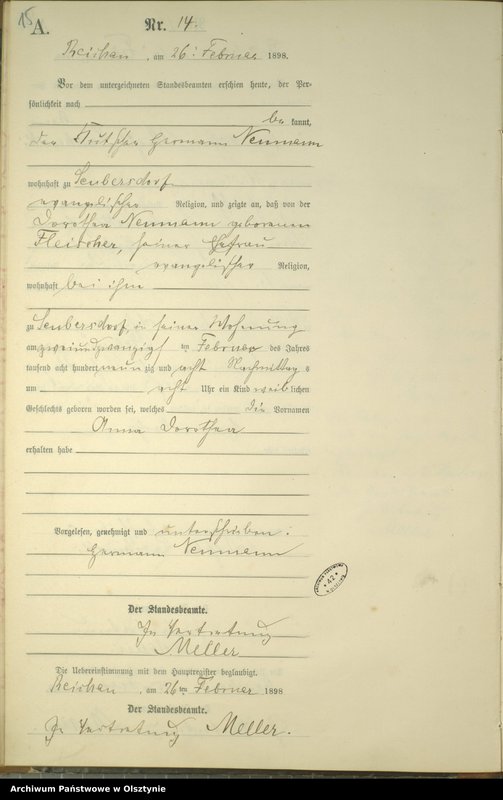 15
A.
Nr. 14.
Reichau, am 26. Februar 1898.
Vor dem unterzeichneten Standesbeamten erschien heute, der Per-
sönlichkeit nach
be kannt,
der Kutscher Hermann Neumann
wohnhaft zu Seubersdorf
evangelischer Religion, und zeigte an, daß von der
Dorothea Neumann geborenen
Fleischer, seiner Ehefrau
evangelischer Religion,
wohnhaft bei ihm
zu Seubersdorf in seiner Wohnung
am zweiundzwanzigst ten Februar des Jahres
tausend acht hundert neun zig und acht Nachmittag s
um acht Uhr ein Kind weib lichen
Geschlechts geboren worden sei, welches die Vornamen
Anna Dorothea
erhalten habe
Vorgelesen, genehmigt und unterschrieben.
Hermann Neumann
Der Standesbeamte.
In Vertretung
Meller
Die Uebereinstimmung mit dem Hauptregister beglaubigt.
Reichau, am 26 ten Februar 1898
Der Standesbeamte.
In Vertretung Meller.
Archiwum Państwowe w Olsztynie